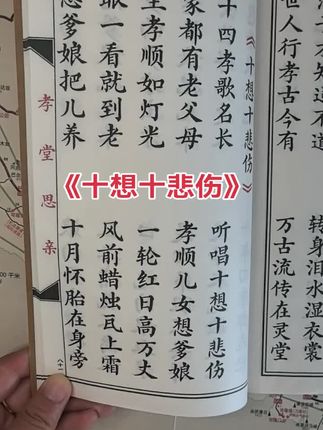 《十想十悲伤》
转身泪水湿衣裳
世人行孝古今有
万古流传在灵堂
《十想十悲伤》
十四孝歌名长
听唱十想十悲伤
家都有老父母
孝顺儿女想爹娘
孝顺如灯光
一轮红日高万丈
眼一看就到老
风前蜡烛瓦上霜
爹娘把儿养
十月怀胎在身旁
孝堂思亲